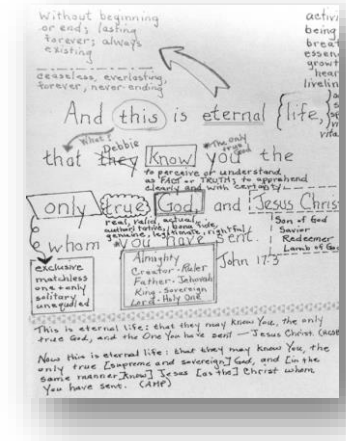 Without beginning
or end; lasting
forever; always
existing
ceaseless, everlasting,
forever, never ending
activi
being
breat
essen
growt
hear
livelin
And this is eternal life,
vita
What!
Debbie
The only
that they know you the
to perceive or understand
as FACT or TRUTH; to apprehend
clearly and with certainty
only true God, and Jesus Chris
real, valid, actual,
authoritative, bona fide,
genuine, legitimate, rightful
Son of God
Savior
Redeemer
Lamb of Go
whom you have sent.
John 17:3
exclusive
matchless
one + only
solitary
unequalled
Almighty
Creator - Ruler
Father - Jehovah
King - Sovereign
Lord - Holy One
This is eternal life: that they may know You, the only
true God, and the One You have sent — Jesus Christ.
Now this is eternal life: that they may know You, the
only true [supreme and sovereign] God, and [in the
same manner know] Jesus [as the] Christ whom
You have sent. (AMP)